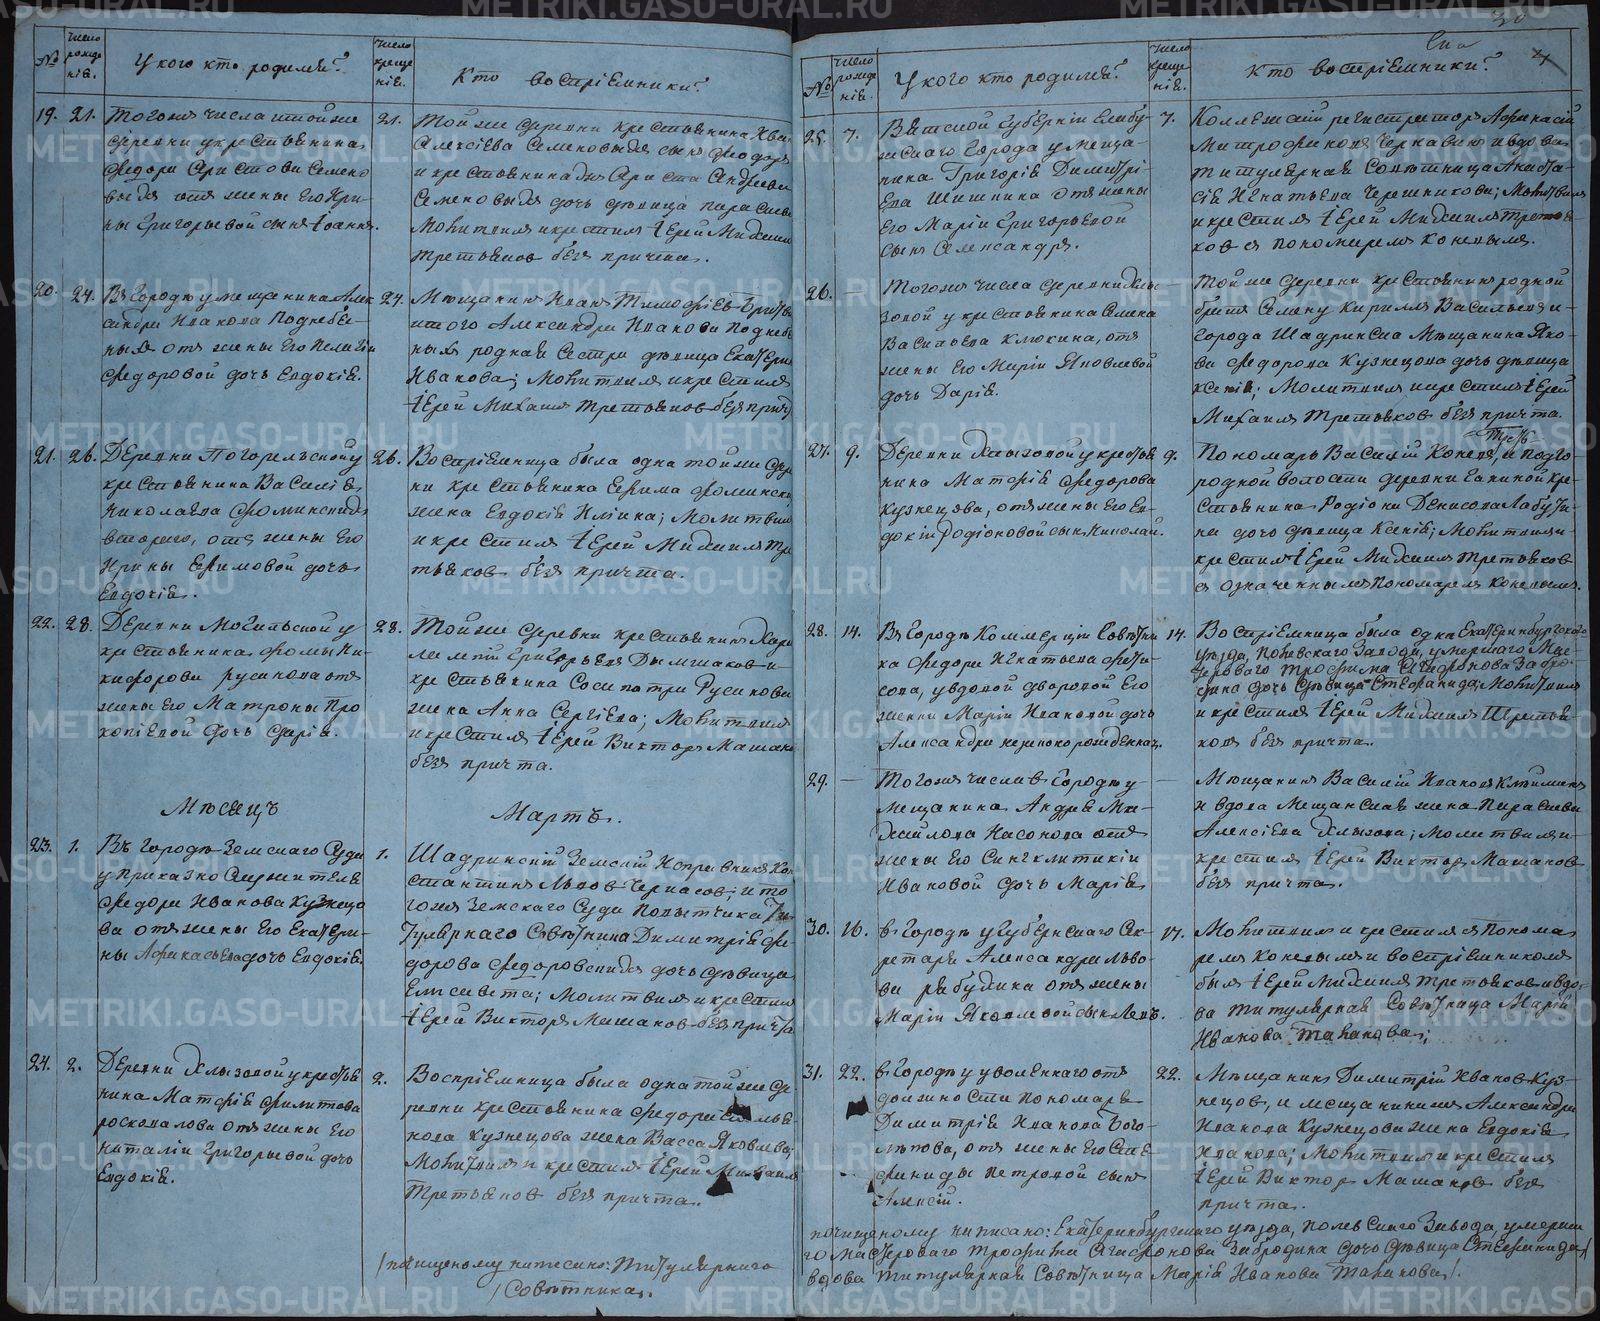 №
Число рожде нія.
У кого кто родился?
Число креще нія.
Кто воспріемники?
19. 21.
Тогожъ числа тойже
деревни у крестьянина
Федора Аристова Семено
выхъ отъ жены его Ири-
ны Григорьевой сынъ Іоаннъ.
21.
Тойже деревни крестьянина Ива
Алексѣева Семеновыхъ сынъ Феодоръ
и крестьянина Ариста Андреева
Семеновыхъ дочь дѣвица Параскева
Молитвилъ и крестилъ Іерей Михаилъ
Третьяковъ безъ причта.
20. 24.
Въ городѣ у мещанина Алек
сандра Иванова
отъ жены его Пелагіи
Федоровой дочь Евдокія.
24.
Мѣщанинъ Иванъ Тимофѣевъ
итого Александра Иванова
родная сестра дѣвица Екатерина
Иванова; Молитвилъ и крестилъ
Іерей Михаилъ Третьяковъ безъ прич
21. 26.
Деревни Погорельской у
крестьянина Василія
Николаева Фоминскихъ
втораго, отъ жены его
Ирины Ефимовой дочь
Евдокія.
26.
Воспріемница была одна тойже дер
ни крестьянина Ефима Фоминскихъ
жена Евдокія Ильина; Молитвилъ
и крестилъ Іерей Михаилъ Тре
тьяковъ безъ причта.
22. 28.
Деревни Могильской у
крестьянина Фомы Ни-
кифорова Русинова отъ
жены его Матроны Про
копіевой дочь Дарія.
28.
Тойже деревни крестьянинъ Хар
лампій Григорьевъ и
крестьянина Сосипатра Русинова
жена Анна Сергіева; Молитвилъ
и крестилъ Іерей Викторъ Машано
безъ причта.
Мѣсяцъ Мартъ.
23. 1.
Въ городѣ Земскаго Суда
у приказнослужителя
Федора Иванова Кузнецо
ва отъ жены его Екатери-
ны Афанасьева дочь Евдокія.
1.
Шадринскій Земскій Исправникъ Кон
стантинъ Львовъ Черкасовъ; и то
гожъ Земскаго Суда Повытчика Ти-
тулярнаго Совѣтника Димитрія Фе
дорова Федоровскихъ дочь дѣвица
Елисавета; Молитвилъ и крестилъ
Іерей Викторъ Машановъ безъ причта
24. 2.
Деревни Хлызовой у крестья
нина Матфія Филитова
отъ жены его
Наталіи Григорьевой дочь
Евдокія.
2.
Воспріемница была одна тойже де
ревни крестьянина Федора
Кузнецова жена Васса Яковлева;
Молитвилъ и крестилъ Іерей Михаилъ
Третьяковъ безъ причта.
/почищеному написано: Титулярнаго
Совѣтника/.
№
Число рожде нія.
У кого кто родился?
Число креще нія.
Кто воспріемники?
25. 7.
Вятской Губерніи Елабу-
жскаго города у меща-
нина Григорія Димитрі-
ева Шишкина отъ жены
его Маріи Григорьевой
сынъ Александръ.
7.
Коллежскій регистраторъ Афанасій
Митрофановъ Чернавинъ и вдова
титулярная Совѣтница Анаста-
сія Игнатьева Черешникова; Молитвилъ
и крестилъ Іерей Михаилъ Третья-
ковъ съ пономаремъ Коневымъ.
26. —
Тогожъ числа деревни Хлы-
зовой у крестьянина Семена
Васильева Клюкина, отъ
жены его Маріи Яковлевой
дочь Дарія.
—
Тойже деревни крестьянинъ родной
братъ Семену Кирилъ Васильевъ и
города Шадринска Мѣщанина Яко-
ва Федорова Кузнецова дочь дѣвица
Ксенія; Молитвилъ и крестилъ Іерей
Михаилъ Третьяковъ безъ причта.
27. 9.
Деревни Хлызовой у крестья
нина Матфія Федорова
Кузнецова, отъ жены его Ев
докіи Родіоновой сынъ Николай.
9.
Пономарь Василій Коневъ, и подго-
родной волости деревни Ганиной кре-
стьянина Родіона Денисова Лабути-
на дочь дѣвица Ксенія; Молитвилъ и
крестилъ Іерей Михаилъ Третьяковъ
съ означеннымъ Пономаремъ Коневымъ.
28. 14.
Въ городѣ Коммерціи Совѣтни
ка Федора Игнатьева Фети-
сова, у вдовой дворовой его
женки Маріи Ивановой дочь
Александра незаконорожденная.
14.
Воспріемница была одна Екатеринбургскаго
уѣзда, Полевскаго Завода, умершаго Мас
тероваго Трофима Агафонова Забро-
дина дочь дѣвица Стефанида; Молитвилъ
и крестилъ Іерей Михаилъ Третья-
ковъ безъ причта.
29. —
Тогожъ числа въ городѣ у
мещанина Андрея Ми-
хайлова Насонова отъ
жены его Синглитикіи
Ивановой дочь Марія.
—
Мѣщанинъ Василій Ивановъ
и вдова Мещанская жена Параскева
Алексіева Хлызова; Молитвилъ и
крестилъ Іерей Викторъ Машановъ
безъ причта.
30. 16.
въ городѣ у Губернскаго Сек
ретаря Александра Льво-
ва Рябухина отъ жены
Маріи Яковлевой сынъ Левъ.
17.
Молитвилъ и крестилъ съ Понома
ремъ Коневымъ и воспріемникомъ
былъ Іерей Михаилъ Третьяковъ и вдо-
ва титулярная Совѣтница Марія
Иванова Таланова;
31. 22.
въ городѣ у уволеннаго отъ
должности пономаря
Димитрія Иванова Бого-
мѣтова, отъ жены его Сте-
фаниды Петровой сынъ
Алексій.
22.
Мѣщанинъ Димитрій Ивановъ Куз-
нецовъ, и мещанина Александра
Иванова Кузнецова жена Евдокія
Иванова; Молитвилъ и крестилъ
Іерей Викторъ Машановъ безъ
причта.
почищеному написано: Екатеринбургскаго уѣзда, Полевскаго Завода, умерша
го Мастероваго Трофима Агафонова Забродина дочь дѣвица Стефанида,/
вдова титулярная Совѣтница Марія Иванова Таланова/.
METRIKI.GASO-URAL.RU